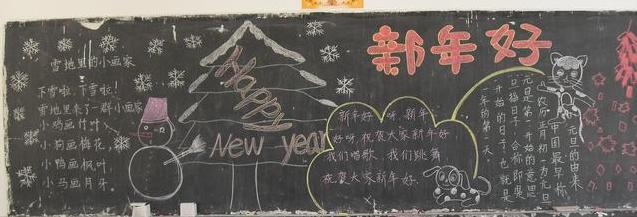 雪地里的小画家
下雪啦,下雪啦!
雪地里来了一群小画家
小鸡画竹叶,
小狗画梅花,
小鸭画枫叶,
小马画月牙。
Happy
New year
新年好
新年好呀,新年
好呀,祝贺大家新年好
我们唱歌,我们跳舞
祝贺大家新年好.
元旦的由来
中国最早称
农历正月初一为元旦
元是第一开始的意思
旦指日子,合称即是
开始的日子,也就是
一年的第一天。